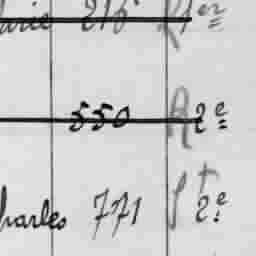 arie 216 R 1er
550 R 2e
harles 771 St 2e